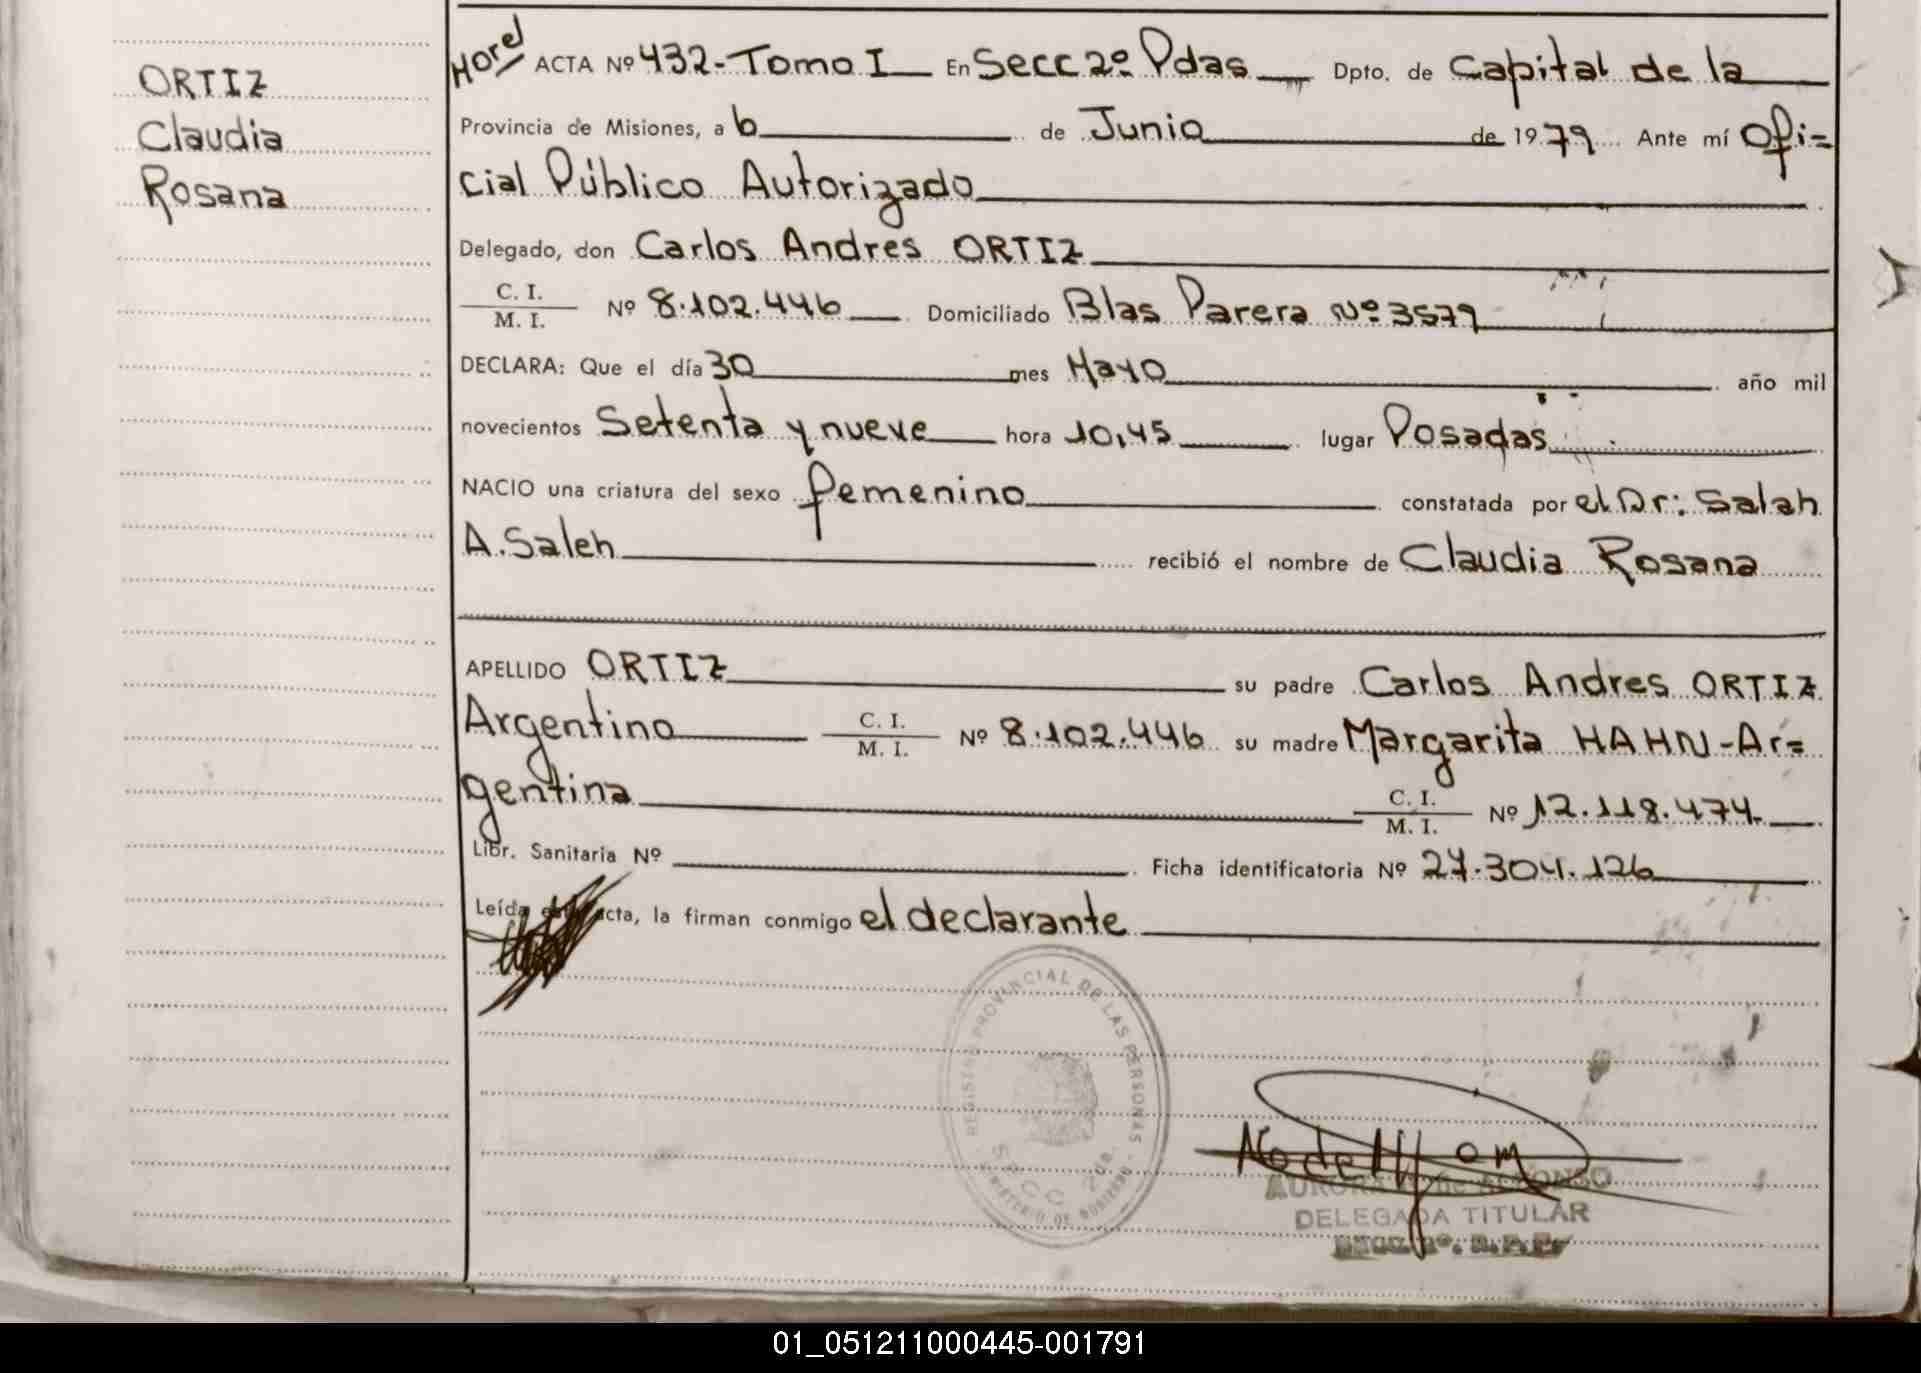 ORTIZ
Claudia
Rosana
ACTA Nº 432-Tomo I En Secc 2º Pdas Dpto. de Capital de la
Provincia de Misiones, a 6 de Junio de 1979 Ante mí Ofi=
cial Público Autorizado
Delegado, don Carlos Andres ORTIZ
C. I.
M. I. Nº 8.102.446 Domiciliado Blas Parera Nº 3579
DECLARA: Que el día 30 mes Mayo año mil
novecientos Setenta y nueve hora 10,45 lugar Posadas
NACIO una criatura del sexo femenino constatada por el Dr: Salah
A. Saleh recibió el nombre de Claudia Rosana
APELLIDO ORTIZ su padre Carlos Andres ORTIZ
Argentino C. I.
M. I. Nº 8.102.446 su madre Margarita HAHN-Ar=
gentina C. I.
M. I. Nº 12.118.474
Libr. Sanitaria Nº Ficha identificatoria Nº 27.304.126
Leída acta, la firman conmigo el declarante
REGISTRO PROVINCIAL DE LAS PERSONAS
SECC 2da.
MINISTERIO DE GOBIERNO
AURORA de ALFONSO
DELEGADA TITULAR
SECC. 2º. R. P. P.
01_051211000445-001791